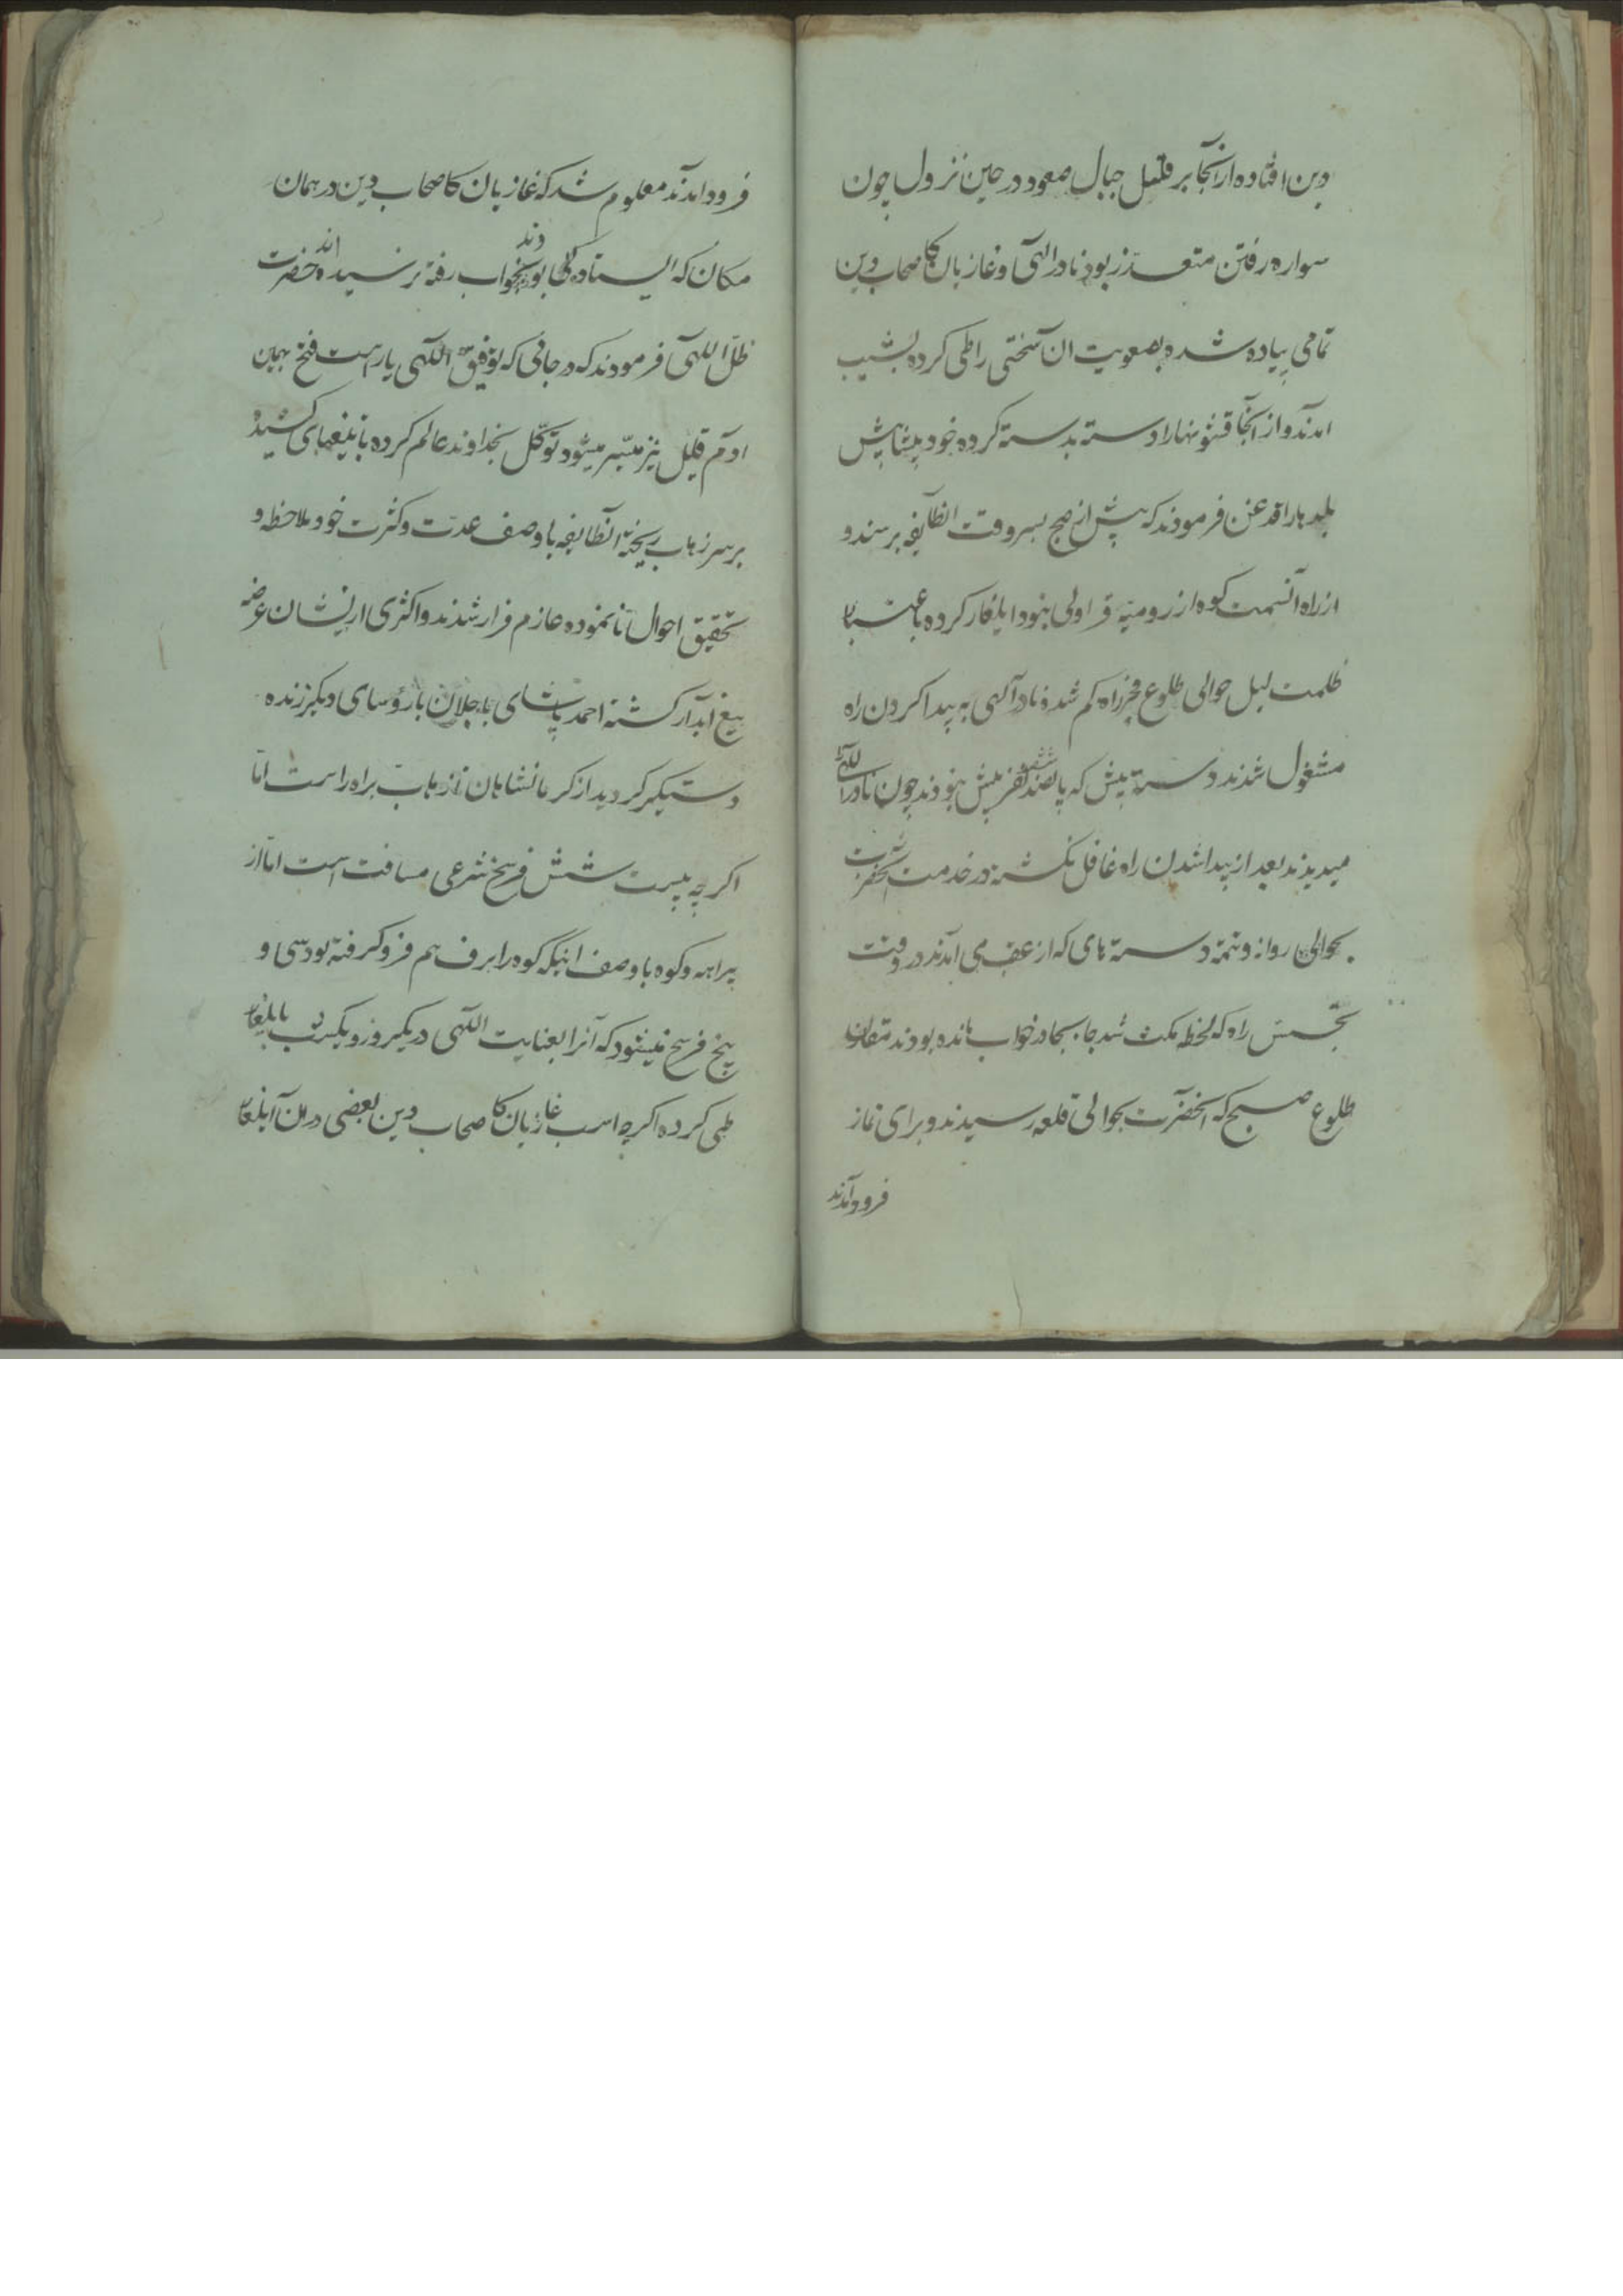 دین افتاده از آنجا بر قلل جبال صعود در حین نزول چون
سواره رفتن متعذّر بود نادرالهی و غازیان کاصحاب دین
تمامی پیاده شده بصعوبت ان سختی را طی کرده بشیب
امدند و از آنجا قشونهارا دسته بدسته کرده خود پیشاپیش
بلدهارا قدغن فرمودند که پیش از صبح بسر وقت انطایفه برسند و
از راه آنسمت کوه از رومیّه قراولی بنود ایلغار کرده باعتبار
ظلمت لیل حوالی طلوع فجر راه کم شد و نادرآلهی به پیدا کردن راه
مشغول شدند دسته پیش که پانصد ششصد نفر بیش بنودند چون نادر اللهی را
میدیدند بعد از پیدا شدن راه غافل نکشته در خدمت آنحضرت
بحوالی روانه و تتمّه دسته های که از عقب می امدند در وقت
تجسّس راه که لحظه مکث شد جا بجا در خواب مانده بودند مقارن
طلوع صبح که انحضرت بحوالی قلعه رسیدند و برای نماز
فرود آمدند
فرود امدند معلوم شد که غازیان کاصحاب دین در همان
مکان که ایستاده کی بودند بخواب رفته نرسیده اند حضرت
ظلّ اللهی فرمودند که در جائی که توفیق اللهی یار است فتح بهمین
ادم قلیل نیز میسّر میشود توکّل بخداوند عالم کرده با تیغهای کشیده
بر سر زهاب ریخته انطایفه با وصف عدّت و کثرت خود ملاحظه و
تحقیق احوال نانموده عازم فرار شدند و اکثری از یشان عرضه
تیغ ابدار کشته احمد پاشای باجلان با رؤسای دیکر زنده
دستیکیر کردید از کرمانشاهان تا زهاب براه راست امّا
اکر چه بیست شش فرسخ شرعی مسافت است امّا از
بیراهه و کوه با وصف اینکه کوه را برف هم فرو کرفته بود سی و
پنج فرسخ میشود که آنرا بعنایت اللهی در یکروز و یکشب بایلغار
طی کرده اکر چه اسب غازیان کاصحاب دین بعضی در ان ایلغار